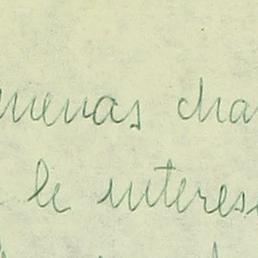 menas cha
le interes